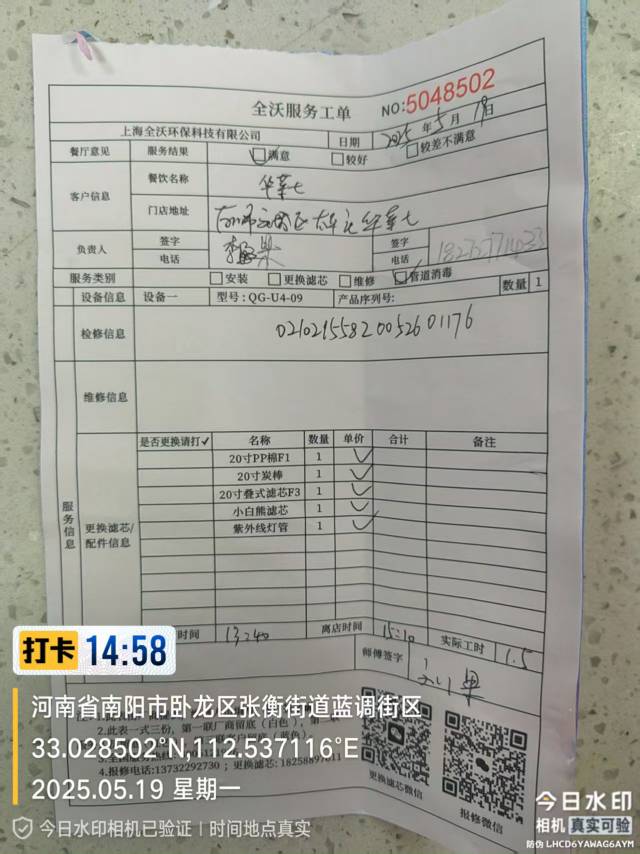 全沃服务工单
NO:5048502
上海全沃环保科技有限公司 日期 2025年5月19日
餐厅意见 服务结果 满意 较好 较差不满意
客户信息 餐饮名称 华莱士
门店地址 华莱士
负责人 签字 签字
电话 电话
服务类别 安装 更换滤芯 维修 管道消毒 数量 1
设备信息 设备一 型号:QG-U4-09 产品序列号:
检修信息 02102155820052601176
维修信息
服务信息
更换滤芯/配件信息
是否更换请打✓ 名称 数量 单价 合计 备注
20寸PP棉F1 1 ✓
20寸炭棒 1 ✓
20寸叠式滤芯F3 1 ✓
小白熊滤芯 1 ✓
紫外线灯管 1 ✓
时间 13:40 离店时间 15:10 实际工时 1.5
师傅签字
2.此表一式三份,第一联厂商留底(白色),第二
留底(蓝色)。
4.报修电话:13732292730;更换滤芯:18258897011
更换滤芯微信
报修微信
打卡 14:58
河南省南阳市卧龙区张衡街道蓝调街区
33.028502°N,112.537116°E
2025.05.19 星期一
今日水印相机已验证 | 时间地点真实
今日水印
相机 真实可验
防伪 LHCD6YAWAG6AYM